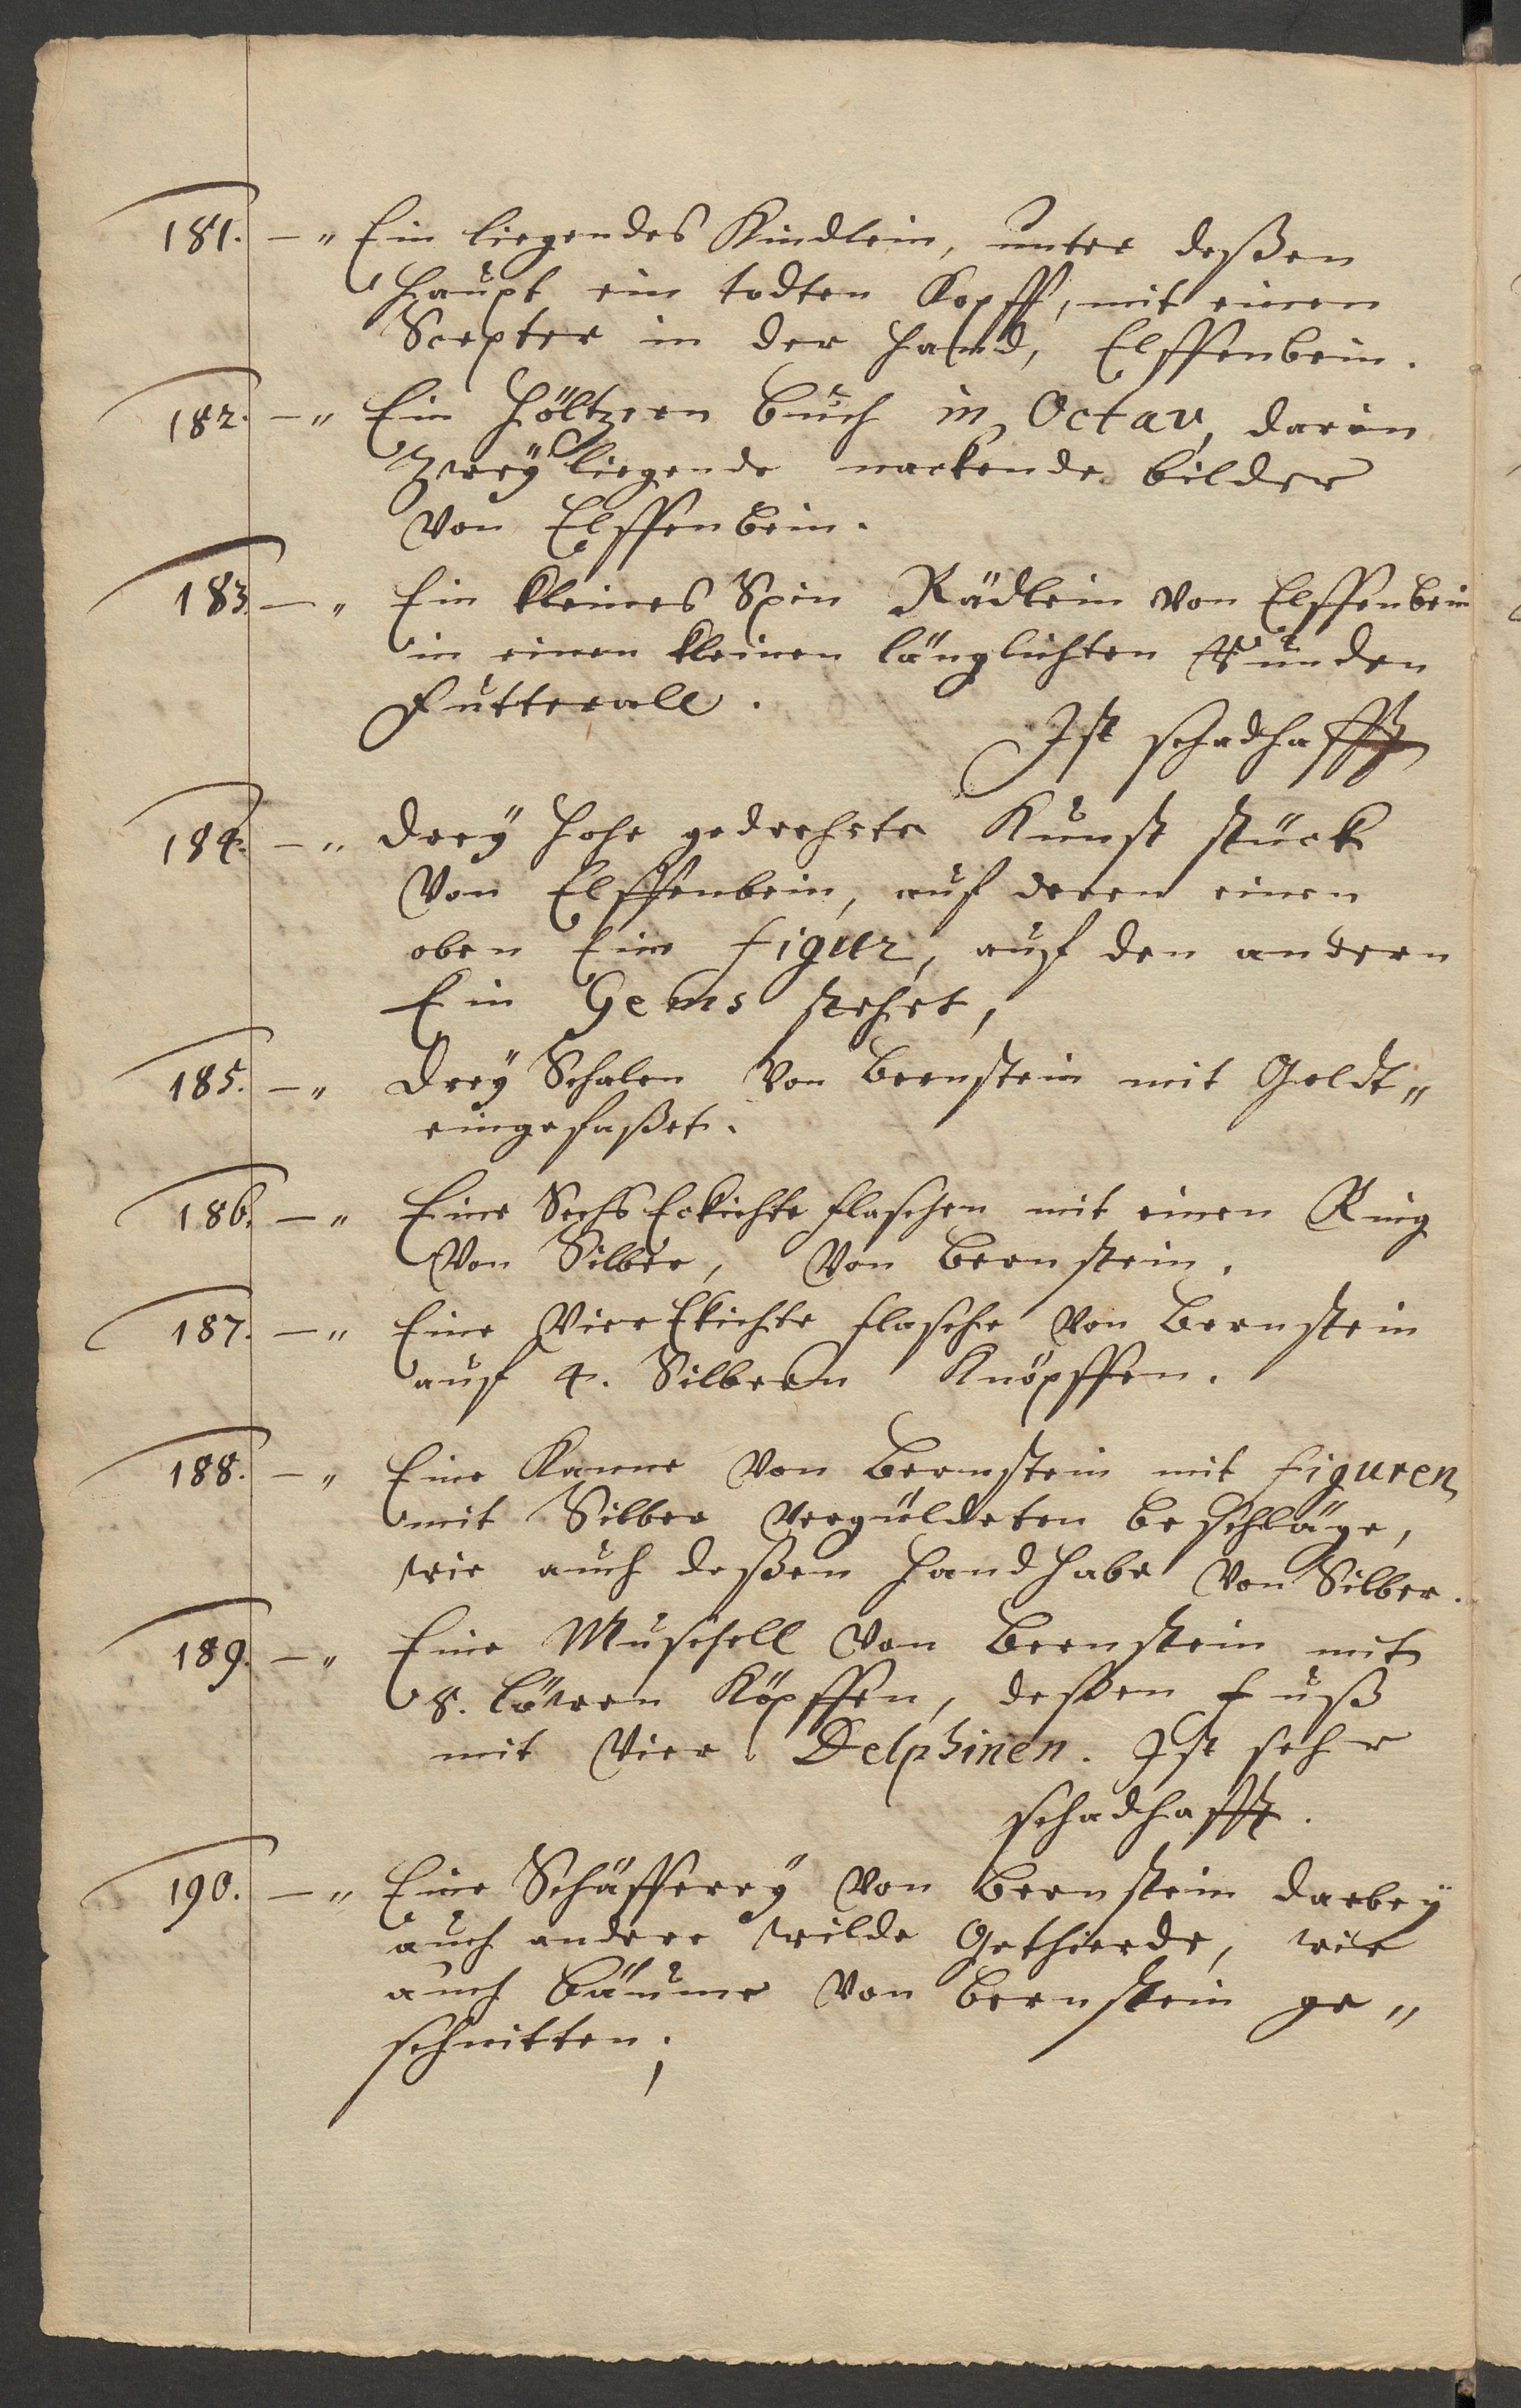 181. —„ Ein liegendes Kindlein, unter deßen
Haupt ein todten Kopff, mit einen
Scepter in der Hand, Elffenbein.
182. —„ Ein Höltzern buch in Octav, darin
Zwey liegende nackende bilder
von Elffenbein.
183. —„ Ein kleines Spin Rädlein von Elffenbein
in einen kleinen länglichten Runden
Futterall.
Ist schadhafft
184. —„ Drey hohe gedrehete Kunst stück
Von Elffenbein, auf deren einen
oben Eine figur, auf den andern
Ein Gems stehet,
185. —„ Drey Schalen Von bernstein mit Goldt„
eingefaßet.
186. —„ Eine SechsEckichte flaschen mit einen Ring
Von Silber, Von bernstein.
187. —„ Eine VierEkichte flasche von bernstein
auf 4. Silbern Knöpffen.
188. —„ Eine Kanne Von bernstein mit figuren
mit Silber vergüldeten beschläge,
wie auch deßen handhabe Von Silber.
189. —„ Eine Muschell Von bernstein mit
8. löwen Köpffen, deßen fuß
mit Vier Delphinen. Ist sehr
schadhafft.
190. —„ Eine Schäfferey Von bernstein darbey
auch andere wilde Gethierde, wie
auch bäume Von bernstein ge„
schnitten.